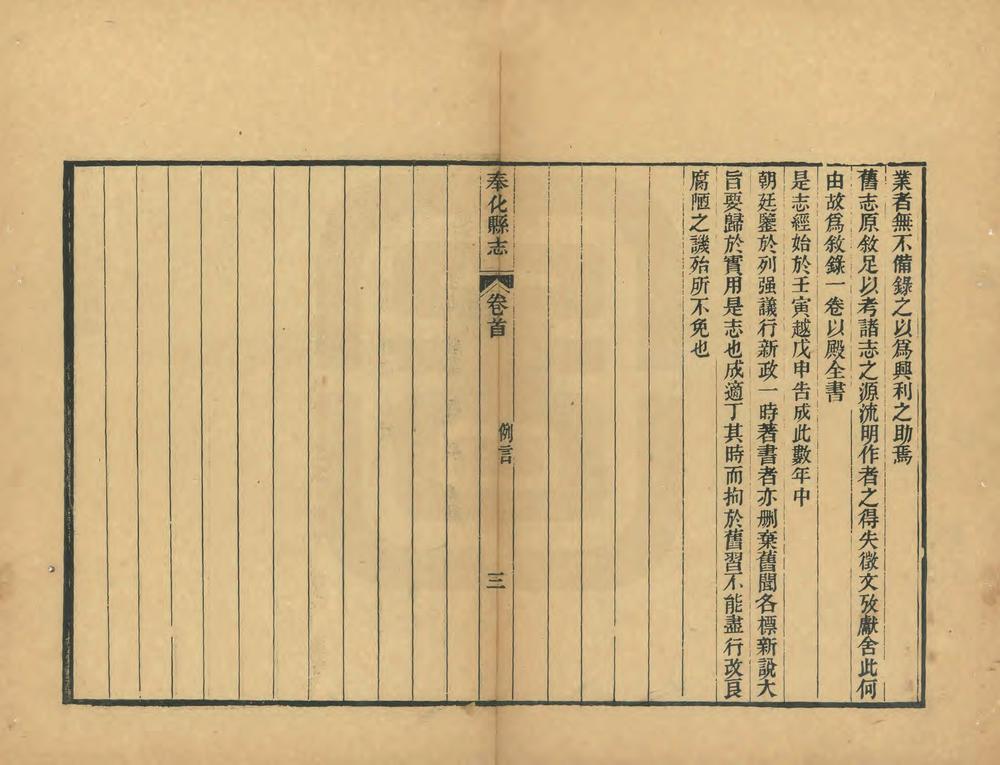 業者無不備錄之以爲興利之助焉
舊志原敘足以考諸志之源流明作者之得失徵文攷獻舍此何
由故爲敘錄一卷以殿全書
是志經始於壬寅越戊申告成此數年中
朝廷鑒於列强議行新政一時著書者亦删棄舊聞各標新說大
旨要歸於實用是志也成適丁其時而拘於舊習不能盡行改良
腐陋之譏殆所不免也
奉化縣志
卷首
例言
三